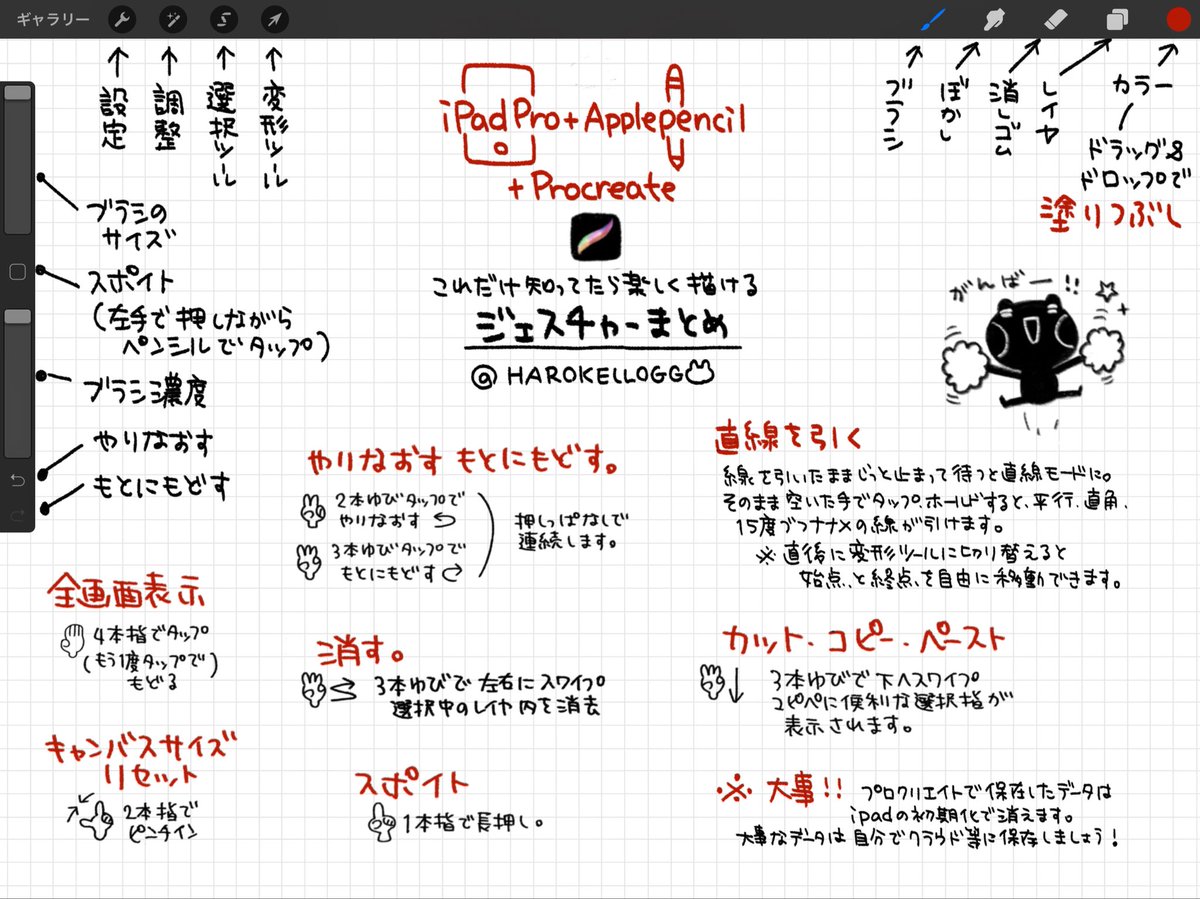 ギャラリー
設定
調整
選択ツール
変形ツール
iPad Pro+Applepencil
+Procreate
ブラシ
ぼかし
消しゴム
レイヤ
カラー
ドラッグ&
ドロップで
塗りつぶし
ブラシの
サイズ
スポイト
(左手で押しながら
ペンシルでタップ)
ブラシ濃度
やりなおす
もとにもどす
これだけ知ってたら楽しく描ける
ジェスチャーまとめ
@HAROKELLOGG
がんばー!!
やりなおす もとにもどす。
2本ゆびタップで
やりなおす
3本ゆびタップで
もとにもどす
押しっぱなしで
連続します。
直線を引く
線を引いたままじっと止まって待つと直線モードに。
そのまま空いた手でタップ、ホールドすると、平行、直角、
15度ブつナナメの線が引けます。
※直後に変形ツールに切り替えると
始点、と終点、を自由に移動できます。
全画面表示
4本指でタップ
(もう1度タップで)
もどる
消す。
3本ゆびで左右にスワイプ
選択中のレイヤ内を消去
カット・コピー・ペースト
3本ゆびで下へスワイプ
コピペに便利な選択指が
表示されます。
キャンバスサイズ
リセット
2本指で
ピンチイン
スポイト
1本指で長押し。
※大事!! プロクリエイトで保存したデータは
ipadの初期化で消えます。
大事なデータは自分でクラウド等に保存しましょう!